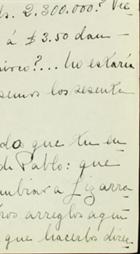 ds. 2.300.000? Vic
á £3.50 dan —
nivoco?... no estaría
semos los sesenta
do que tu en
di Pablo: que
mbiar a Lizarra
ros arreglos aquí
que hacerlos dire